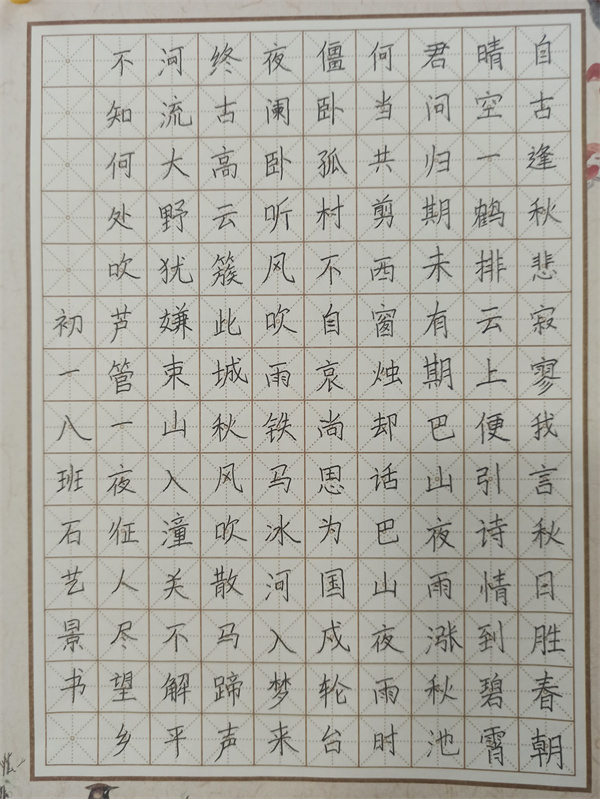 自古逢秋悲寂寥我言秋日胜春朝
晴空一鹤排云上便引诗情到碧霄
君问归期未有期巴山夜雨涨秋池
何当共剪西窗烛却话巴山夜雨时
僵卧孤村不自哀尚思为国戍轮台
夜阑卧听风吹雨铁马冰河入梦来
终古高云簇此城秋风吹散马蹄声
河流大野犹嫌束山入潼关不解平
不知何处吹芦管一夜征人尽望乡
初一八班石艺景书